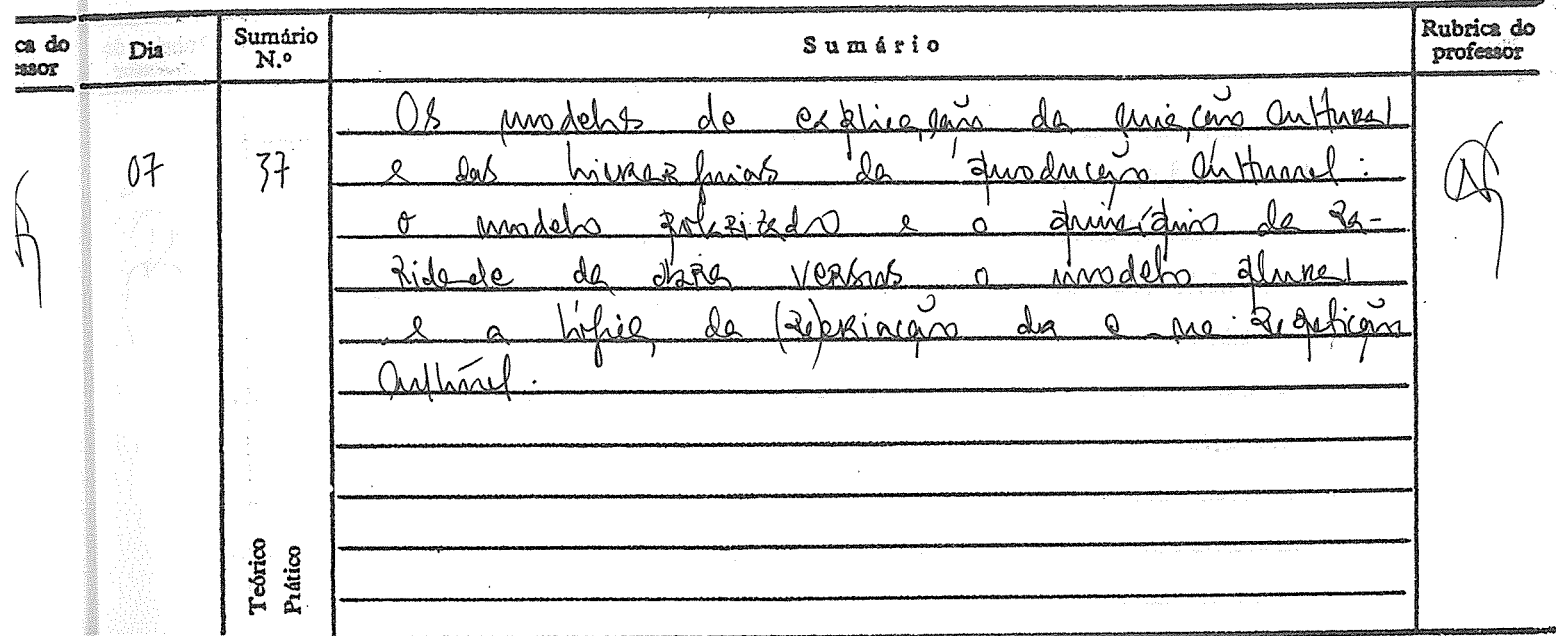 ca do
essor
Dia
Sumário
N.º
Sumário
Rubrica do
professor
Os modelos de explicação da criação cultural
07
37
e das hierarquias da produção cultural:
o modelo polarizado e o princípio da ra-
ridade da obra versus o modelo plural
e a lógica da (re)criação da e na repetição
cultural.
Teórico
Prático